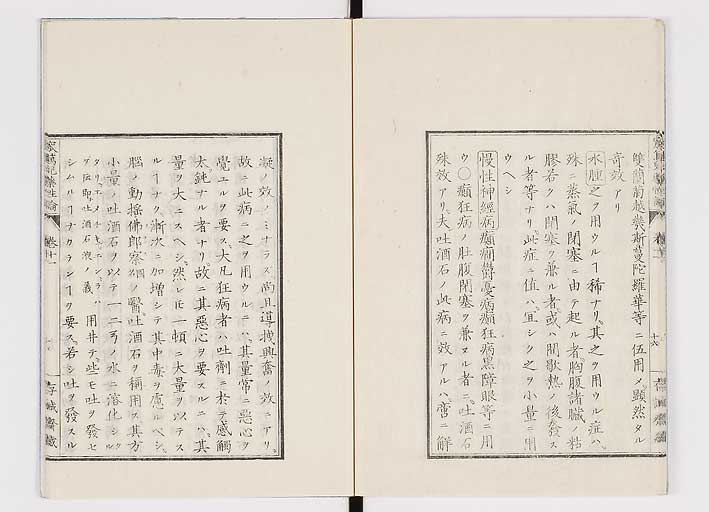 雙蘭蔔越幾斯蔓陀羅華等ニ伍用メ顕然タル
奇效アリ
水腫之ヲ用ウルヿ稀ナリ其之ヲ用ウル症ハ
殊ニ蒸氣ノ閉塞ニ由テ起ル者胸腹諸臓ノ粘
膠若クハ閉塞ヲ兼ル者或ハ間歇熱ノ後發ス
ル者等ナリ此症ニ值ハ宜シク之ヲ小量ニ用
ウヘシ
慢性神經病癲癇欝憂病癲狂病黒障眼等ニ用
ウ○癲狂病ノ肚腹閉塞ヲ兼ヌル者ニ吐酒石
殊效アリ夫吐酒石ノ此病ニ效アルハ啻ニ解
凝ノ效ノミナラス尚且導拽興奮ノ效ニアリ
故ニ此病ニ之ヲ用ウルニハ其量常ニ惡心ヲ
覺エルヲ要ス大凡狂病者ハ吐劑ニ於テ感觸
太鈍ナル者ナリ故ニ其惡心ヲ要スルニハ其
量ヲ大ニスヘシ然レ𪜈一頓ニ大量ヲ以テス
ルーナク漸次ニ加增シテ其中毒ヲ慮ルヘシ
腦ノ動搖佛郎察ノ醫吐酒石ヲ稱用ス其方
小量ノ吐酒石ヲ以テ一二弓ノ水ニ溶化シ
用井テ些モ吐ヲ發セ
シムリーナカラシーヲ要ス若シ吐ヲ發スル
巻十一
十六
存誠齋藏
存誠齋藏